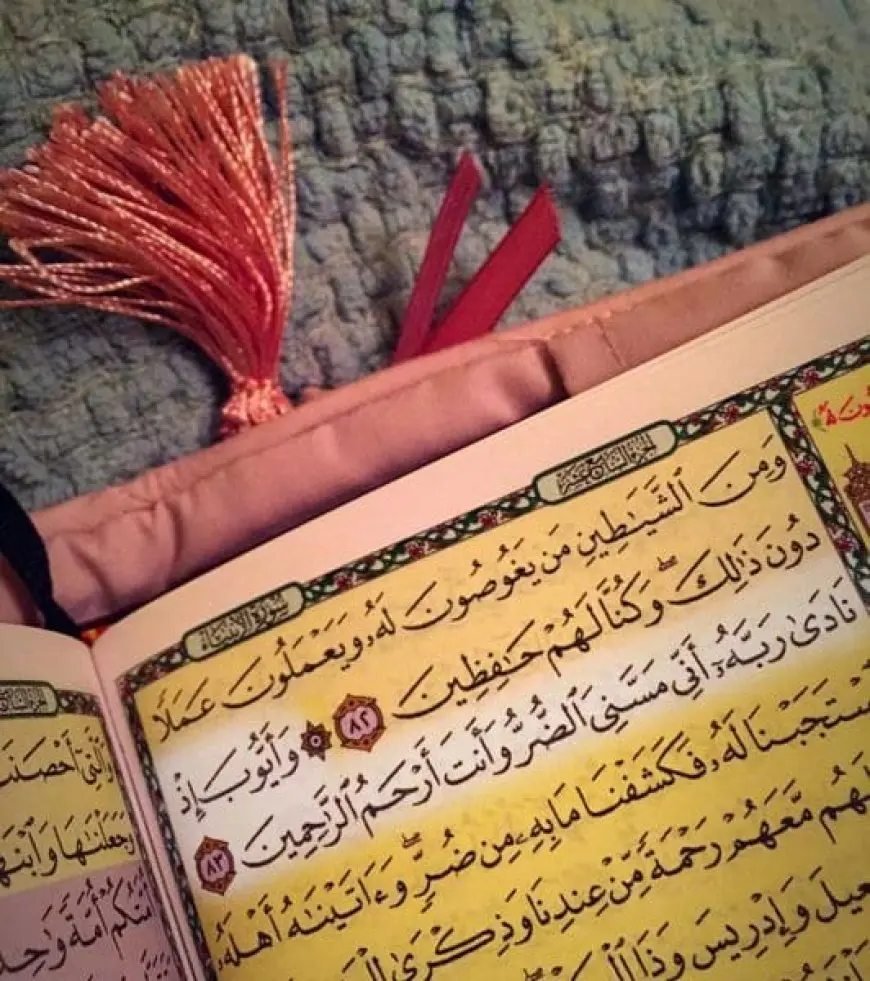 الجزء السابع عشر
سورة الأنبياء
وَمِنَ ٱلشَّيَٰطِينِ مَن يَغُوصُونَ لَهُۥ وَيَعْمَلُونَ عَمَلًا
دُونَ ذَٰلِكَ ۖ وَكُنَّا لَهُمْ حَٰفِظِينَ ٨٢ وَأَيُّوبَ إِذْ
نَادَىٰ رَبَّهُۥٓ أَنِّى مَسَّنِىَ ٱلضُّرُّ وَأَنتَ أَرْحَمُ ٱلرَّٰحِمِينَ ٨٣
سْتَجَبْنَا لَهُۥ فَكَشَفْنَا مَا بِهِۦ مِن ضُرٍّ ۖ وَءَاتَيْنَٰهُ أَهْلَهُۥ
لَهُم مَّعَهُمْ رَحْمَةً مِّنْ عِندِنَا وَذِكْرَىٰ
عِيلَ وَإِدْرِيسَ وَذَا
وَٱلَّتِىٓ أَحْصَنَتْ
وَجَعَلْنَٰهَا وَٱبْنَهَا
أُمَّتُكُمْ أُمَّةً وَٰحِ